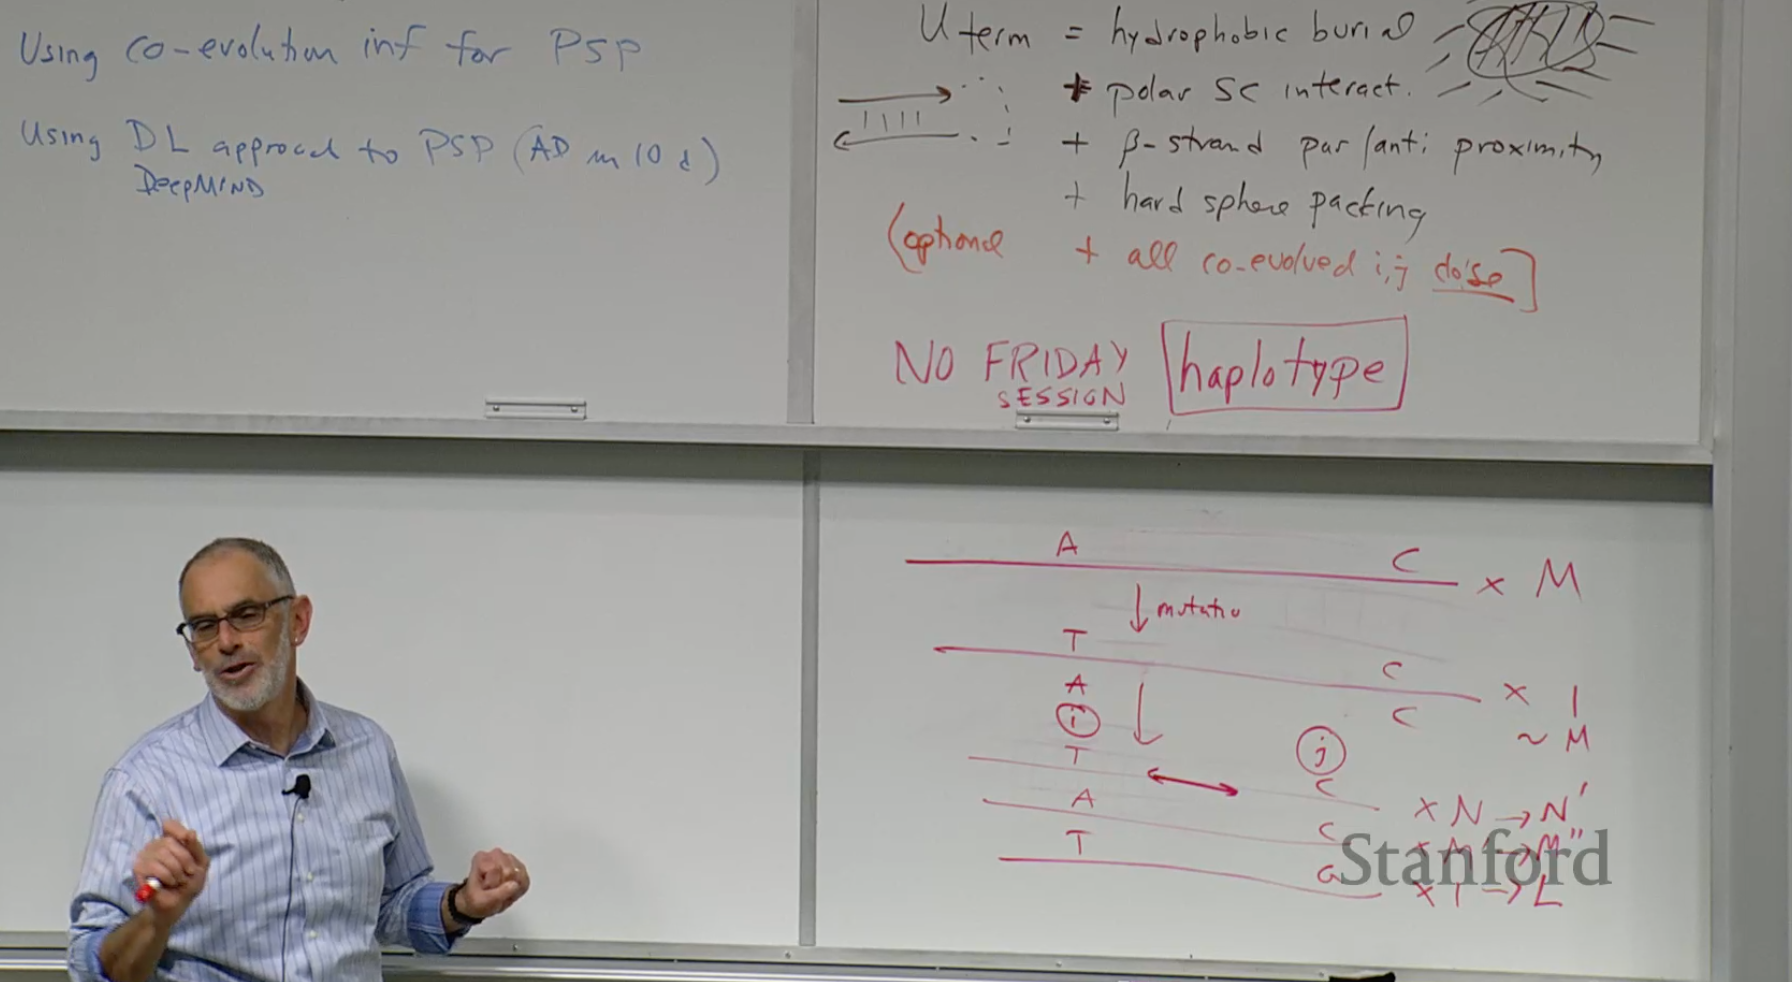 Using co-evolution inf for PSP
Using DL approach to PSP (AD in 10 d)
DEEPMIND
U term = hydrophobic burial
+ polar SC interact.
+ β-strand par/anti proximity
+ hard sphere packing
(optional + all co-evolved i,j close]
NO FRIDAY
SESSION
haplotype
A C × M
↓ mutatio
T C × 1
A C ~ M
i j
T C × N → N'
A C × M → M"
T G × 1 → L
Stanford